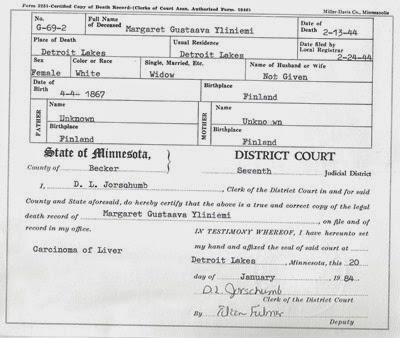 Form 2251-Certified Copy of Death Record-(Clerks of Court Assn. Authorized Form.
Miller-Davis Co., Minneapolis
No. Full Name of Deceased Date of Death
G-69-2 Margaret Gustaava Yliniemi 2-13-44
Place of Death Usual Residence Date filed by Local Registrar
Detroit Lakes Detroit Lakes 2-24-44
Sex Color or Race Single, Married, Etc. Name of Husband or Wife
Female White Widow Not Given
Date of Birth Birthplace
4-4- 1867 Finland
FATHER Name MOTHER Name
Unknown Unkno wn
Birthplace Birthplace
Finland Finland
State of Minnesota, DISTRICT COURT
County of Becker Seventh Judicial District
I, D. L. Jorschumb , Clerk of the District Court in and for said
County and State aforesaid, do hereby certify that the above is a true and correct copy of the legal
death record of Margaret Gustaava Yliniemi , on file and of
record in my office.
IN TESTIMONY WHEREOF, I have hereunto set
my hand and affixed the seal of said court at
Carcinoma of Liver
Detroit Lakes , Minnesota, this 20
day of January , 1984
D.L. Jorschumb
Clerk of the District Court
By
Deputy